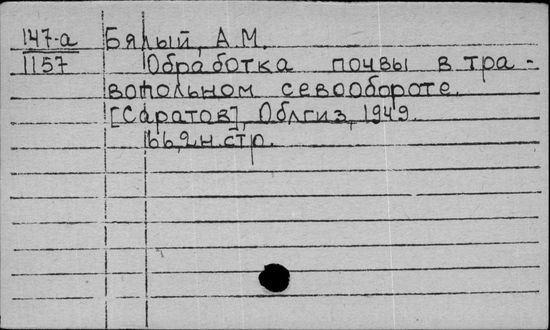 147-а Бялый, А.М.
1157 Обработка почвы в тра-
вопольном севообороте.
[Саратов], Облгиз, 1949.
166,2н.стр.